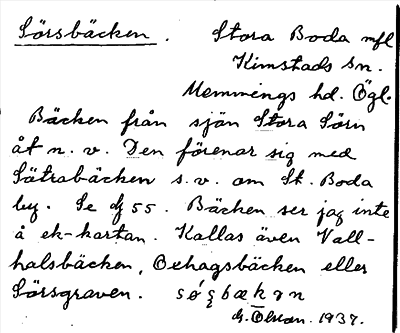 Sörsbäcken. Stora Boda mfl
Kimstads sn.
Memmings hd. Ögl.
Bäcken från sjön Stora Sörn
åt n. v. Den förenar sig med
Sätrabäcken s.v. om St. Boda
by. Se dj 55. Bäcken ser jag inte
å ek-kartan. Kallas även Vall-
halsbäcken, Oehagsbäcken eller
Sörsgraven.
G. Olson. 1937.